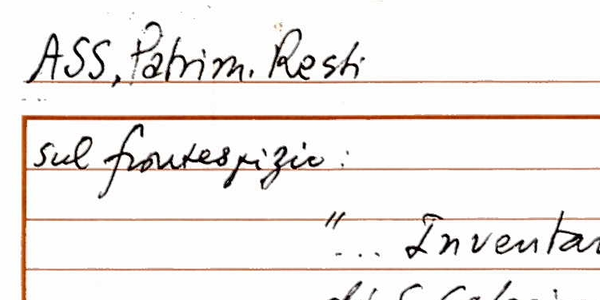 ASS, Patrim. Resti
sul frontespizio:
"... Inventar
di S.